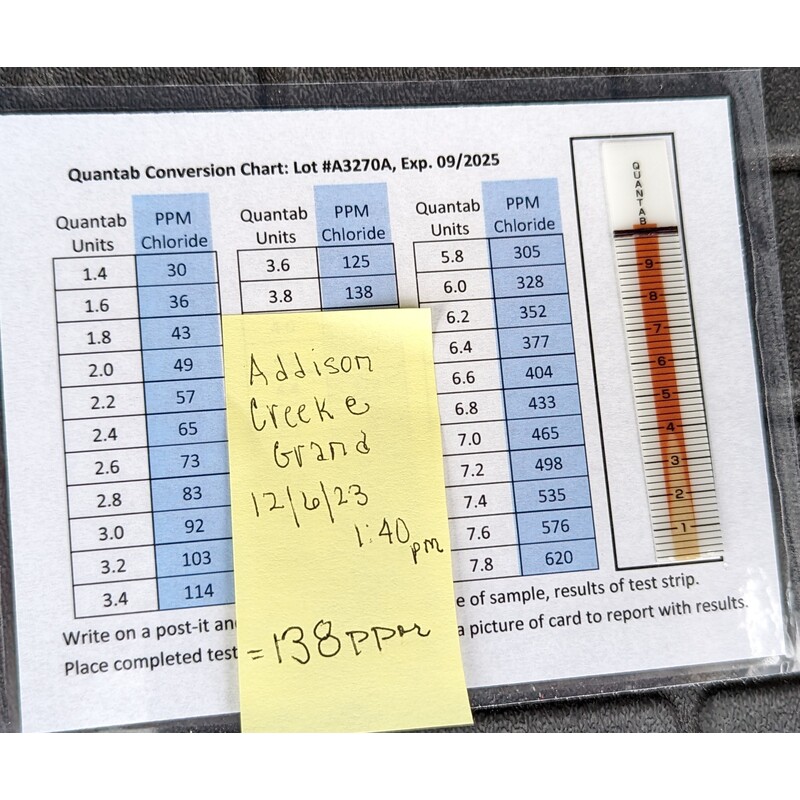 Quantab Conversion Chart: Lot #A3270A, Exp. 09/2025
Quantab Units PPM Chloride
1.4 30
1.6 36
1.8 43
2.0 49
2.2 57
2.4 65
2.6 73
2.8 83
3.0 92
3.2 103
3.4 114
Quantab Units PPM Chloride
3.6 125
3.8 138
Quantab Units PPM Chloride
5.8 305
6.0 328
6.2 352
6.4 377
6.6 404
6.8 433
7.0 465
7.2 498
7.4 535
7.6 576
7.8 620
QUANTAB
9
8
7
6
5
4
3
2
1
Addison
Creek @
Grand
12/6/23
1:40
pm
=138ppm
Write on a post-it an e of sample, results of test strip.
Place completed test a picture of card to report with results.